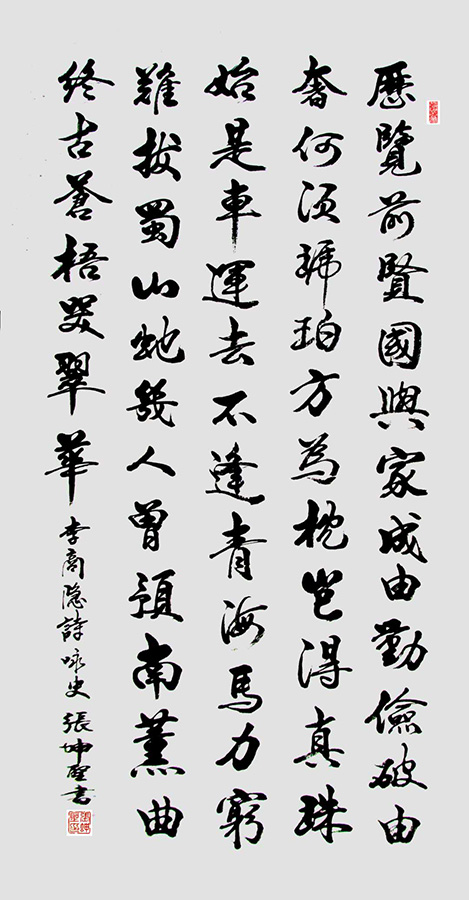 歷覽前賢國與家成由勤儉破由
奢何須琥珀方為枕豈得真珠
始是車運去不逢青海馬力窮
難拔蜀山蛇幾人曾預南薰曲
終古蒼梧哭翠華
李商隐詩咏史 張坤聖書